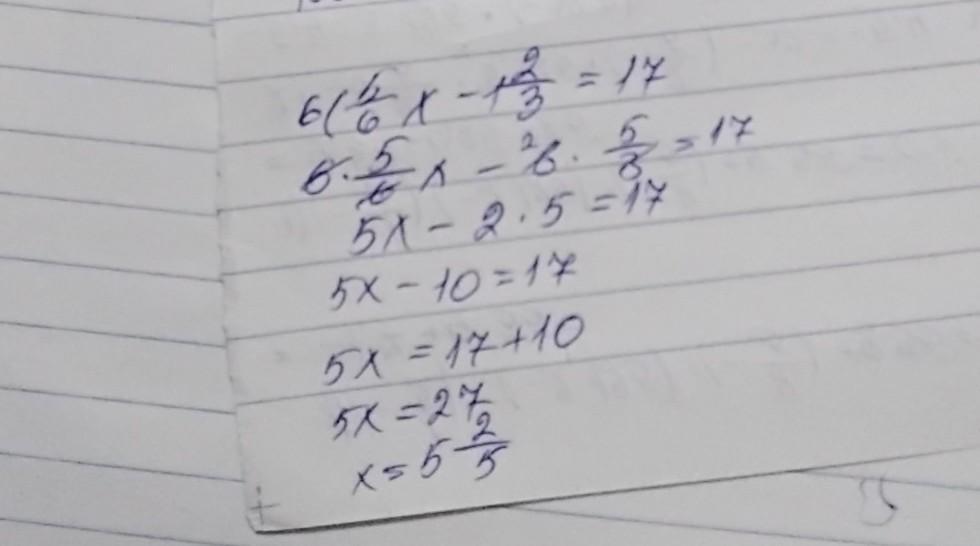 6(5/6 x - 1 2/3 = 17
6 · 5/6 x - ²6 · 5/3 = 17
5x - 2 · 5 = 17
5x - 10 = 17
5x = 17 + 10
5x = 27
x = 5 2/5